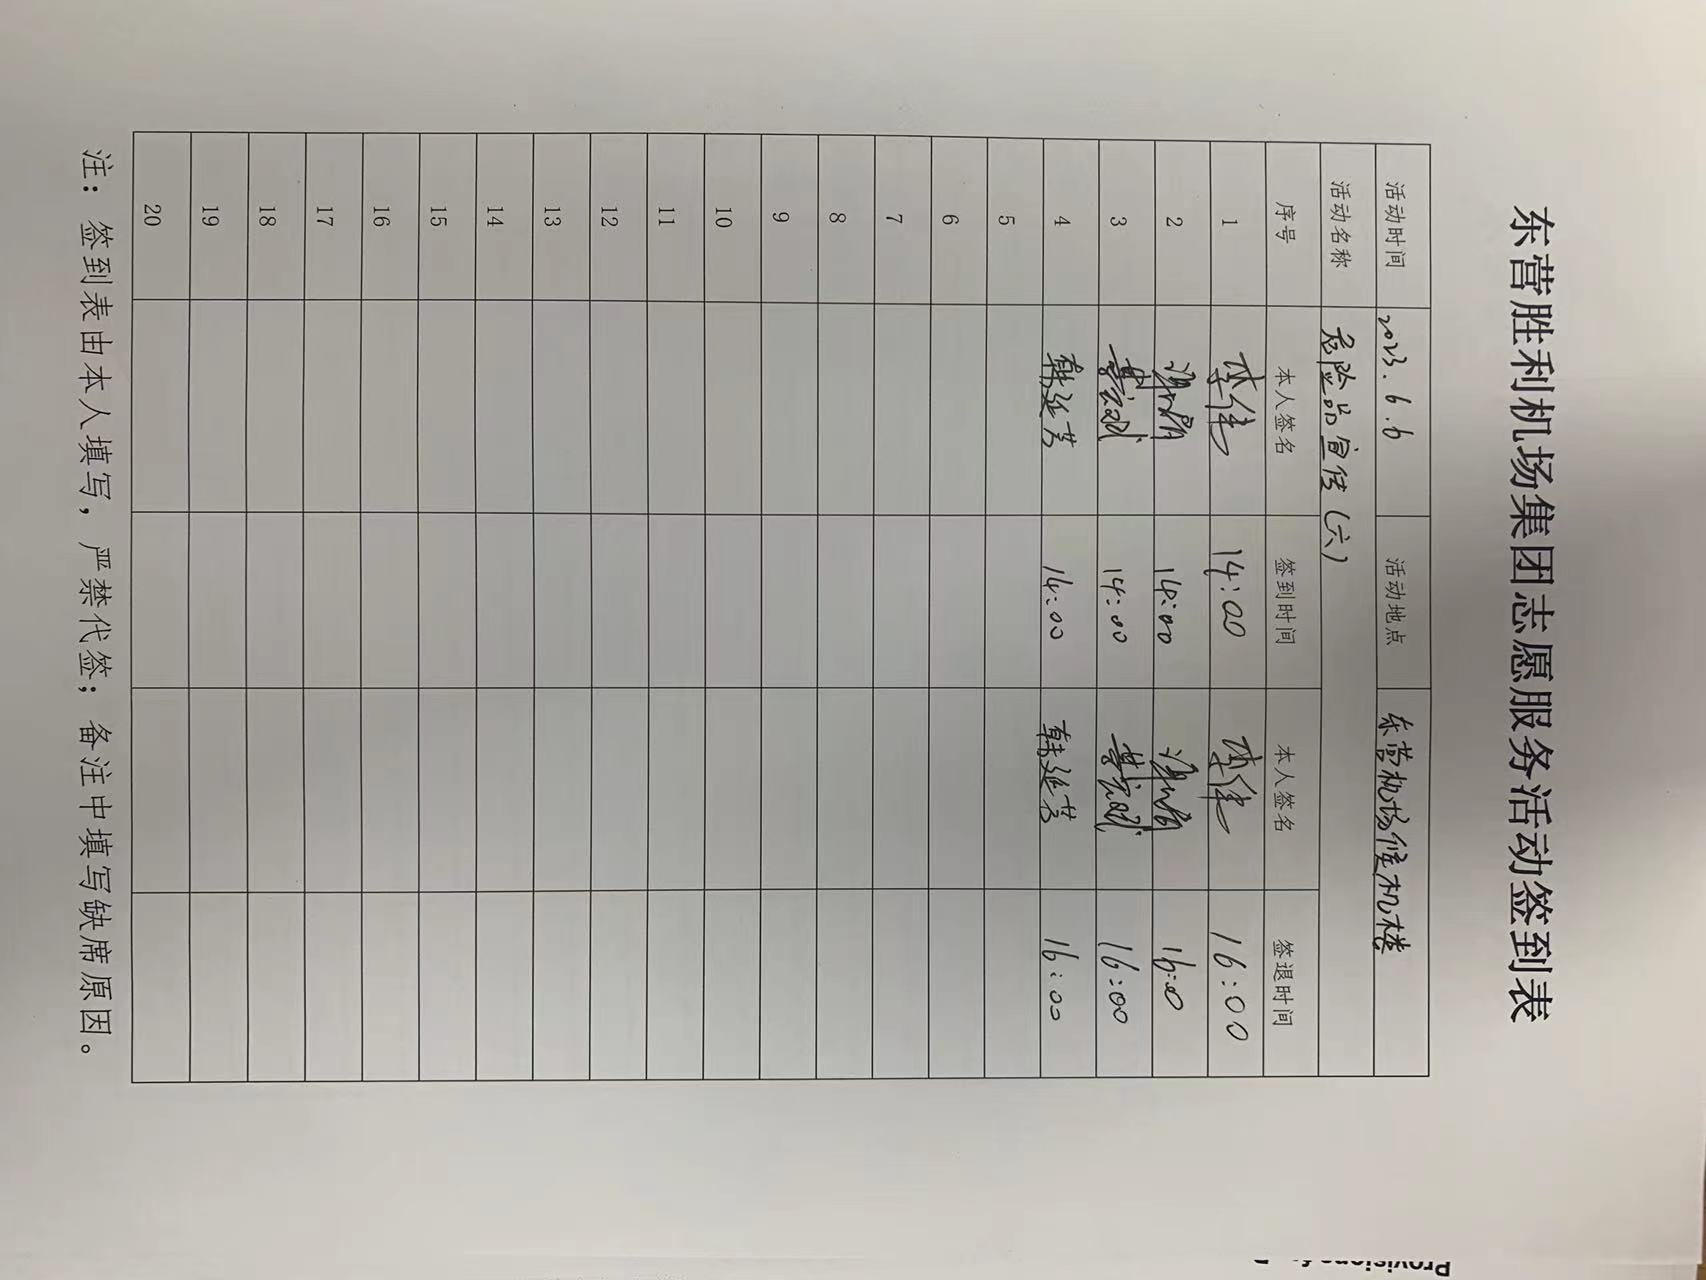 东营胜利机场集团志愿服务活动签到表
活动时间 2023.6.6 活动地点 东营机场候机楼
活动名称 危险品宣传(六)
序号 本人签名 签到时间 本人签名 签退时间
1 14:00 16:00
2 14:00 16:00
3 14:00 16:00
4 韩延芳 14:00 韩延芳 16:00
5
6
7
8
9
10
11
12
13
14
15
16
17
18
19
20
注：签到表由本人填写，严禁代签；备注中填写缺席原因。
Provisions